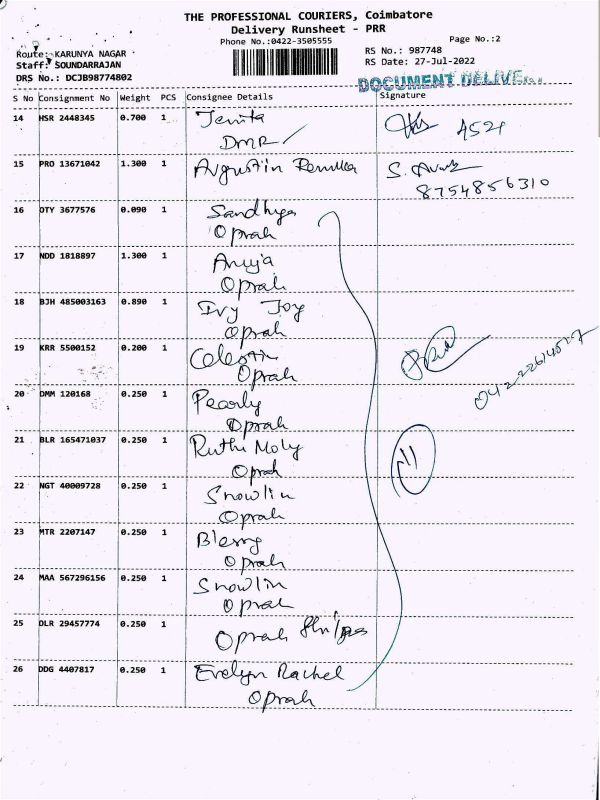 THE PROFESSIONAL COURIERS, Coimbatore
Delivery Runsheet - PRR
Phone No.:0422-3505555
Page No.:2
Route: KARUNYA NAGAR
RS No.: 987748
Staff: SOUNDARRAJAN
RS Date: 27-Jul-2022
DRS No.: DCJB98774802
DOCUMENT DELIVE
S No Consignment No Weight PCS Consignee Details Signature
14 HSR 2448345 0.700 1 Jenita
DMR
4521
15 PRO 13671042 1.300 1 Augustin Renuka S.
8754856310
16 OTY 3677576 0.090 1 Sandhya
Oprah
17 NDD 1818897 1.300 1 Anuja
Oprah
18 BJH 485003163 0.890 1 Ivy Joy
Oprah
19 KRR 5500152 0.200 1 Celestin
Oprah
20 DMM 120168 0.250 1 Pearly
Oprah
21 BLR 165471037 0.250 1 Ruthu Moly
Oprah
11
22 NGT 40009728 0.250 1 Snowlin
Oprah
23 MTR 2207147 0.250 1 Blessy
Oprah
24 MAA 567296156 0.250 1 Snowlin
Oprah
25 DLR 29457774 0.250 1 Oprah Shilpa
26 DDG 4407817 0.250 1 Evelyn Rachel
Oprah